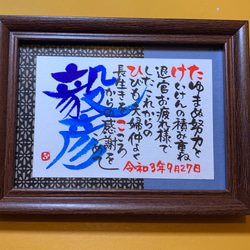 毅彦
たゆまぬ努力と
けいけんの積み重ね
退官お疲れ様で
したこれからの
ひびも夫婦仲よく
長生きをこころ
からの感謝を
こめて
令和3年9月27日